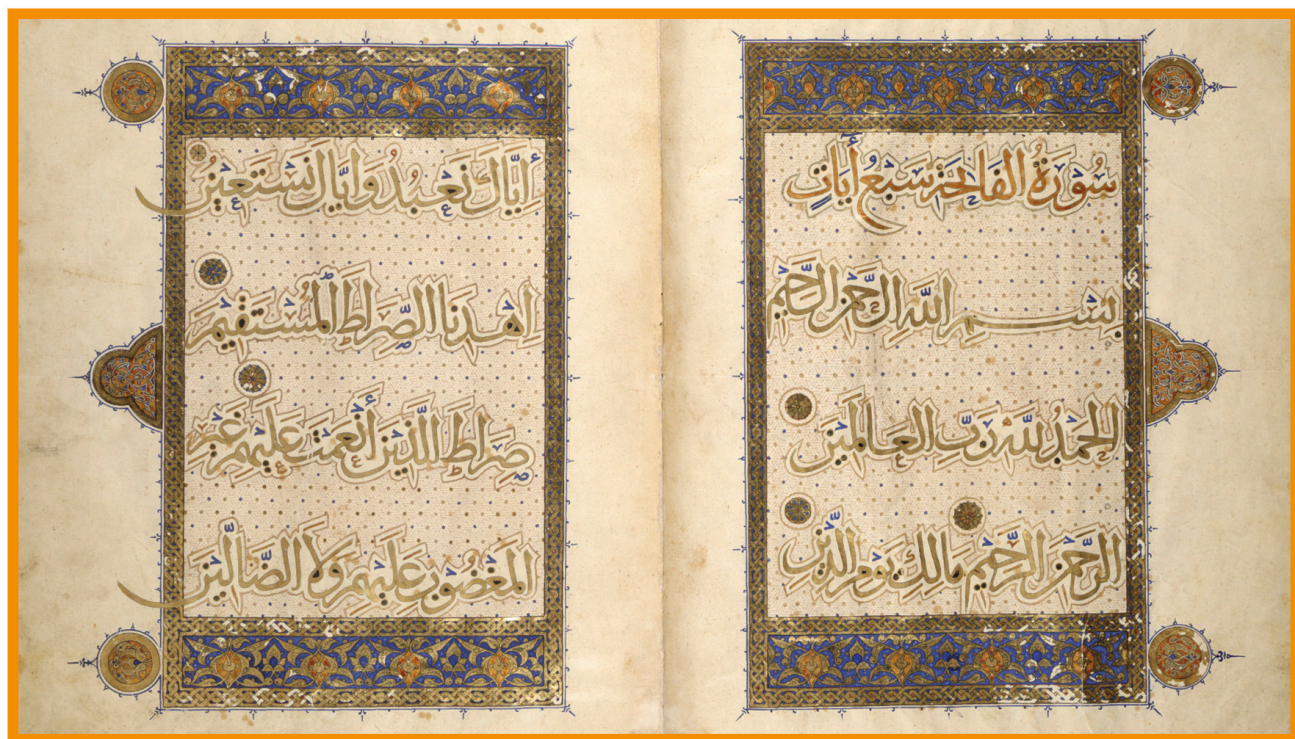 سُورَةُ الفَاتِحَةِ سَبْعُ أَيَاتٍ
بِسْمِ اللَّهِ الرَّحْمَنِ الرَّحِيمِ
الْحَمْدُ لِلَّهِ رَبِّ الْعَالَمِينَ
الرَّحْمَنِ الرَّحِيمِ مَالِكِ يَوْمِ الدِّينِ
إِيَّاكَ نَعْبُدُ وَإِيَّاكَ نَسْتَعِينُ
اهْدِنَا الصِّرَاطَ الْمُسْتَقِيمَ
صِرَاطَ الَّذِينَ أَنْعَمْتَ عَلَيْهِمْ غَيْرِ
الْمَغْضُوبِ عَلَيْهِمْ وَلَا الضَّالِّينَ